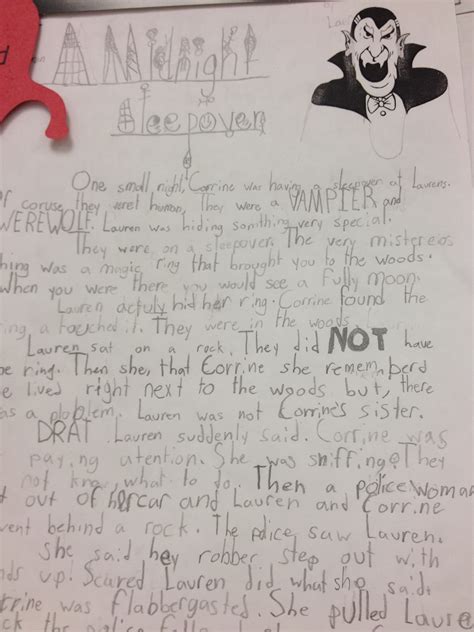 by
Lau
A Midnight
Sleepover
One small night, Corrine was having a sleepover at Laurens.
Of coruse they weret human, They were a VAMPIER and
WEREWOLF. Lauren was hiding somthing very special.
They were on a sleepover. The very mistereios
thing was a magic ring that brought you to the woods.
When you were there you would see a fully moon.
Lauren actuly hid her ring. Corrine found the
ing a touched it. They were in the woods.
Lauren sat on a rock. They did NOT have
he ring. Then she, that Corrine she rememberd
e lived right next to the woods but, there
as a ploblem. Lauren was not Corrine's sister.
DRAT Lauren suddenly said. Corrine was
paying atention. She was sniffing. They
not know what to do. Then a police woman
t out of her car and Lauren and Corrine
went behind a rock. The police saw Lauren.
She said hey robber step out with
nds up! Scared Lauren did what she said.
orrine was flabbergasted. She pulled Laure
ck the police